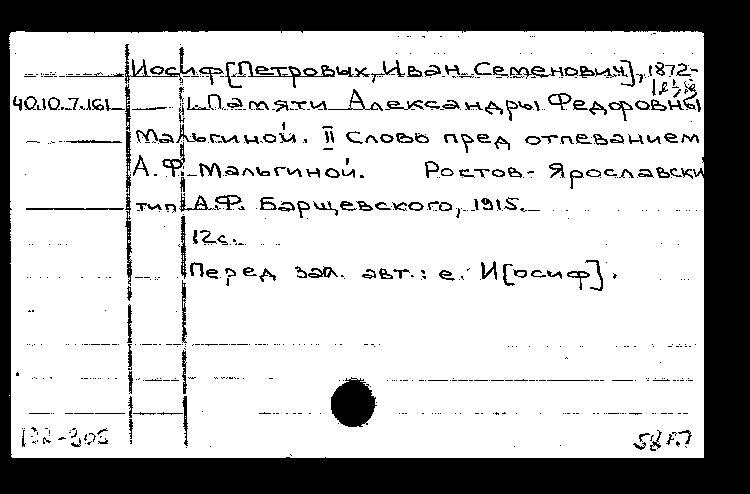 Иосиф[Петровых, Иван Семенович], 1872-
40.10.7.161 I. Памяти Александры Федоровны
Мальгиной. II Слово пред отпеванием
А.Ф. Мальгиной. Ростов-Ярославски
тип. А.Ф. Барщевского, 1915.
12с.
Перед заг. авт.: е. И[осиф].